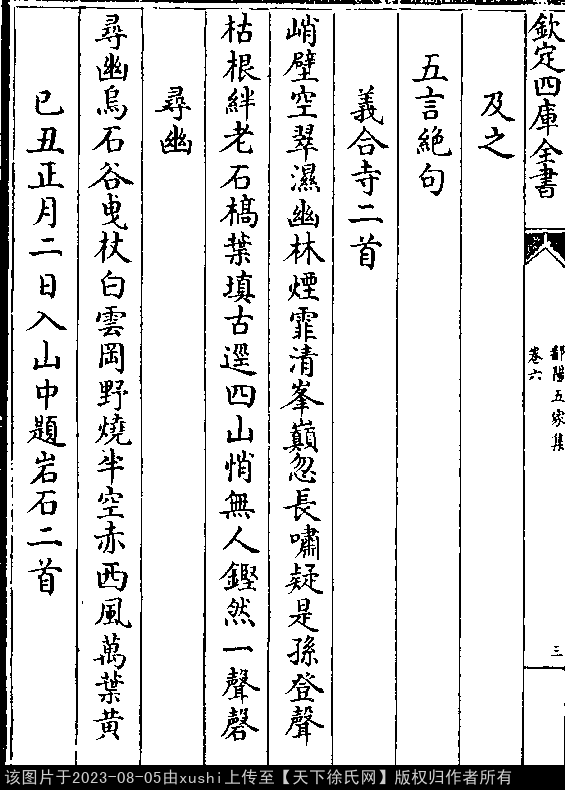 欽定四庫全書
鄱陽五家集
卷六
三
及之
五言絶句
義合寺二首
峭壁空翠濕幽林煙霏清峯巔忽長嘯疑是孫登聲
枯根絆老石槁葉填古逕四山悄無人鏗然一聲磬
尋幽
尋幽烏石谷曵杖白雲岡野燒半空赤西風萬葉黄
已丑正月二日入山中題岩石二首
该图片于2023-08-05由xushi上传至【天下徐氏网】版权归作者所有